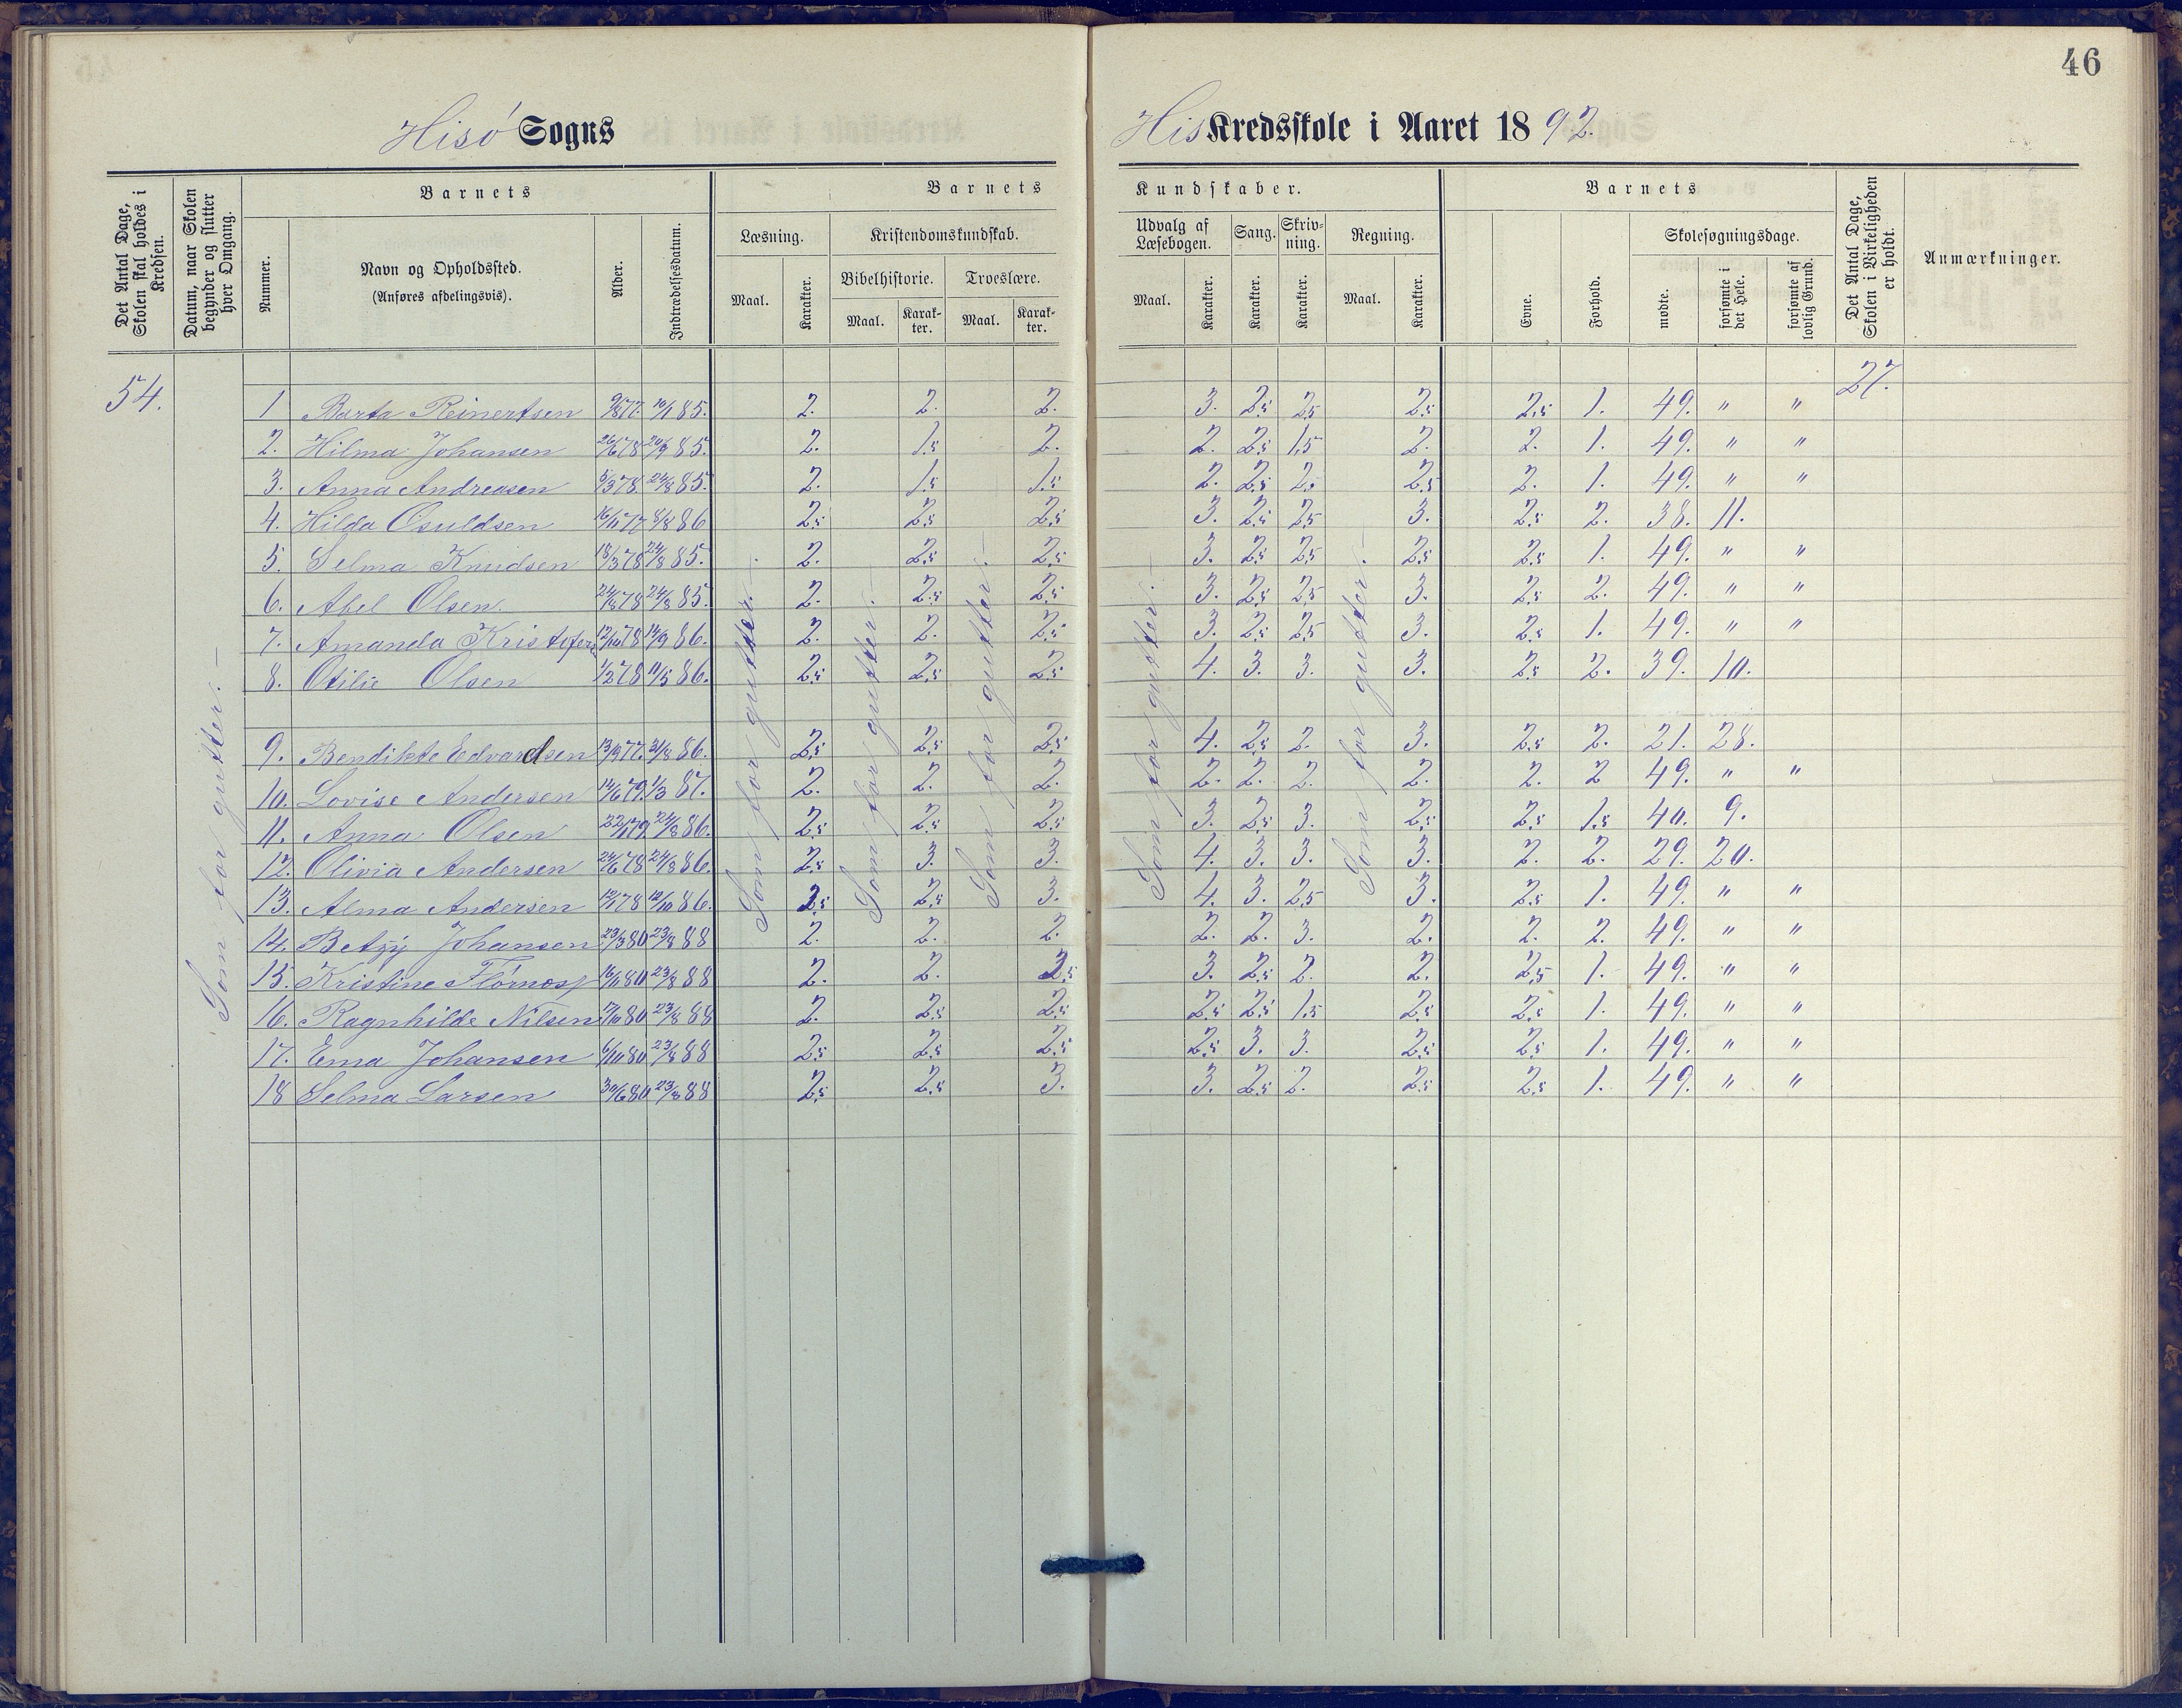 46
Hisø Sogns His Kredsskole i Aaret 1892.
Det Antal Dage, Skolen skal holdes i Kredsen.
Datum, naar Skolen begynder og slutter hver Omgang.
Barnets
Nummer.
Navn og Opholdssted.
(Anføres afdelingsvis).
Alder.
Indtrædelsesdatum.
Barnets Kundskaber.
Læsning.
Maal. Karakter.
Kristendomskundskab.
Bibelhistorie. Troeslære.
Maal. Karakter. Maal. Karakter.
Udvalg af Læsebogen.
Maal. Karakter.
Sang. Karakter.
Skrivning. Karakter.
Regning.
Maal. Karakter.
Barnets
Evne. Forhold.
Skolesøgningsdage.
mødte. forsømte i det Hele. forsømte af lovlig Grund.
Det Antal Dage, Skolen i Virkeligheden er holdt.
Anmærkninger.
54. 27.
1 Barta Reinertsen 9/877. 10/1 85. 2. 2. 2. 3. 2.5 2.5 2.5 2.5 1. 49. " "
2. Hilma Johansen 26/678 20/9 85. 2. 1.5 2. 2. 2.5 1.5 2. 2. 1. 49. " "
3. Anna Andreasen 5/378 24/8 85. 2. 1.5 1.5 2. 2.5 2.5 2.5 2. 1. 49. " "
4. Hilda Osuldsen 16/1177 8/8 86 2.5 2.5 2.5 3. 2.5 2.5 3. 2.5 2. 38. 11.
5. Selma Knudsen 18/378 24/8 85. 2. 2.5 2.5 3. 2.5 2.5 2.5 2.5 1. 49. " "
6. Abel Olsen. 24/878 24/8 85. 2. 2.5 2.5 3. 2.5 2.5 3. 2.5 2. 49. " "
7. Amanda Kristofers 12/1078 14/9 86. 2. 2. 2.5 3. 2.5 2.5 3. 2.5 1. 49. " "
8. Otilie Olsen 1/278 11/5 86. 2.5 2.5 2.5 4. 3. 3. 3. 2.5 2. 39. 10.
9. Bendikte Edvardsen 13/977. 31/8 86. 2.5 2.5 2.5 4. 2.5 2. 3. 2.5 2. 21. 28.
10. Lovise Andersen 14/679. 1/3 87. 2. 2. 2. 2. 2. 2. 2. 2. 2 49. " "
11. Anna Olsen 22/179 24/8 86. 2.5 2.5 2.5 3. 2.5 3. 2.5 2.5 1.5 40. 9.
12. Olivia Andersen 24/678 24/8 86. 2.5 3. 3. 4. 3. 3. 3. 2. 2. 29. 20.
13. Alma Andersen 12/178 12/10 86. 2.5 2.5 3. 4. 3. 2.5 3. 2.5 1. 49. " "
14. Betzy Johansen 23/380 23/8 88 2. 2. 2. 2. 2. 3. 2. 2. 2. 49. " "
15. Kristine 16/180 23/8 88 2. 2. 2.5 3. 2.5 2. 2. 2.5 1. 49. " "
16. Ragnhilde Nilsen 17/1080 23/8 88 2. 2.5 2.5 2.5 2.5 1.5 2.5 2.5 1. 49. " "
17. Ema Johansen 6/1080 23/8 88 2.5 2.5 2.5 2.5 3. 3. 2.5 2.5 1. 49. " "
18 Selma Larsen 30/680 23/8 88 2.5 2.5 3. 3. 2.5 2. 2.5 2.5 1. 49. " "
Som for gutter. –
Som for gutter. –
Som for gutter. –
Som for gutter. –
Som for gutter. –
Som for gutter. –